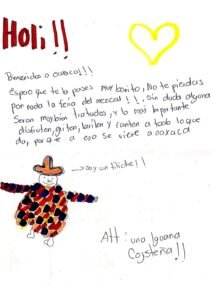 Holi!!
Bienvenidos a oaxaca!!!
Espero que te la pases muy bonito, No te pierdas
por nada la feria del mezcal!!!, sin duda alguna
Seran muy bien tratados, y lo mas importante
disfruten, giten, bailen y canten a todo lo que
da, porque a eso se viene a oaxaca
soy un tiliche!!
Att: una Iguana
Costeña!!